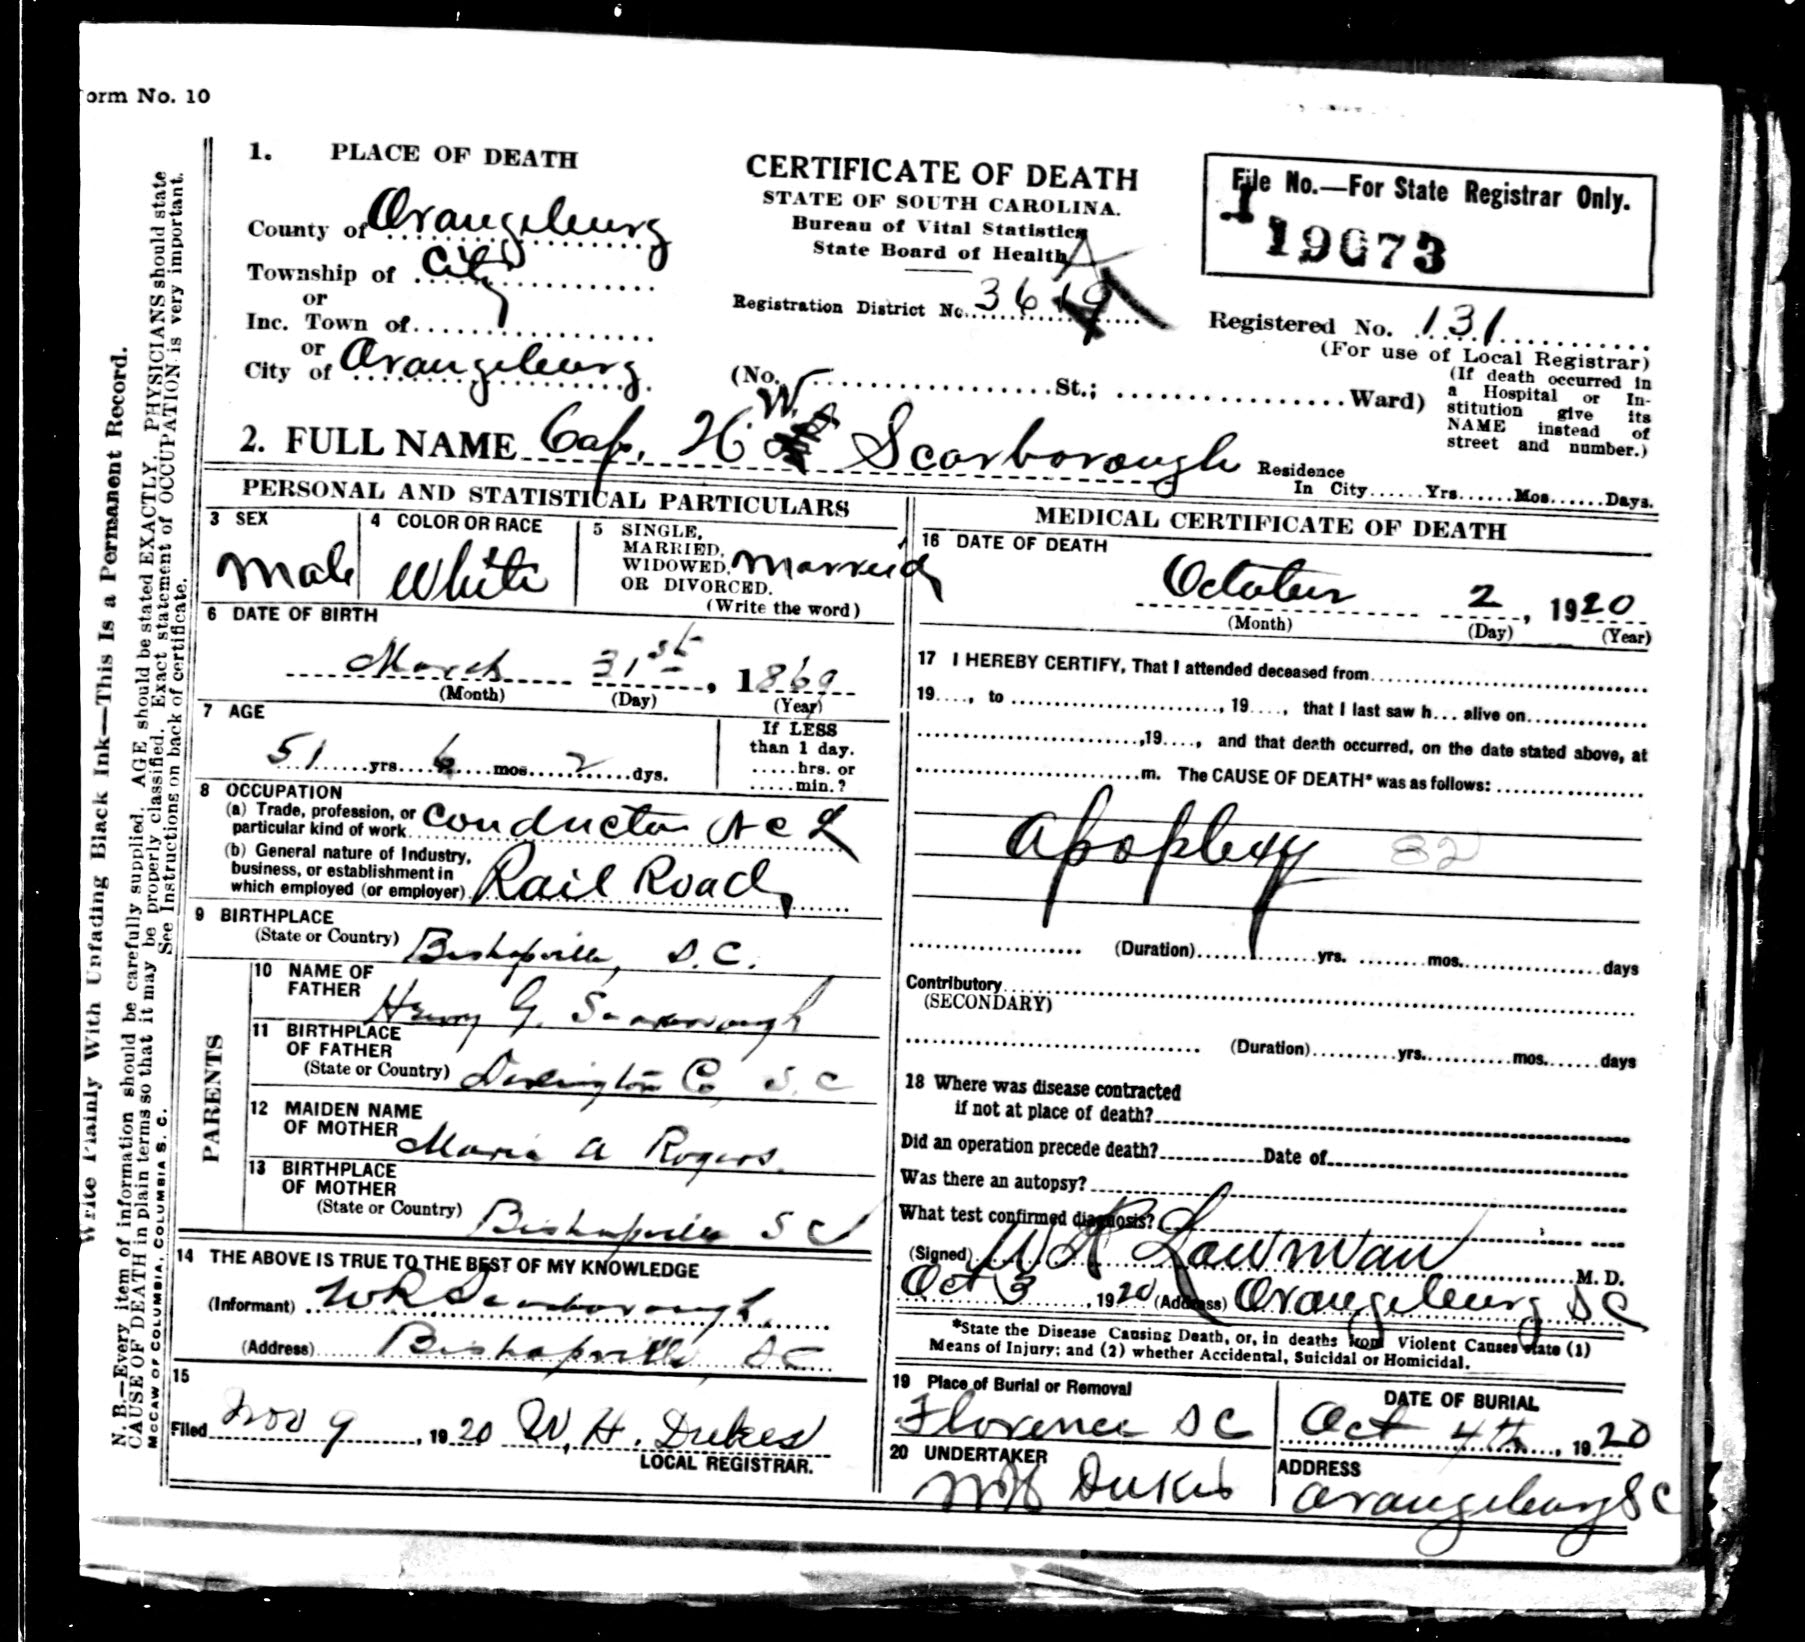 orm No. 10
1. PLACE OF DEATH
County of Orangeburg
Township of City
or
Inc. Town of
or
City of Orangeburg
CERTIFICATE OF DEATH
STATE OF SOUTH CAROLINA.
Bureau of Vital Statistics
State Board of Health
Registration District No. 3619 A
(No. St.; Ward)
File No.—For State Registrar Only.
19673
Registered No. 131
(For use of Local Registrar)
(If death occurred in
a Hospital or In-
stitution give its
NAME instead of
street and number.)
2. FULL NAME Cap. H W. Scarborough
Residence
In City Yrs Mos Days.
PERSONAL AND STATISTICAL PARTICULARS
3 SEX
Male
4 COLOR OR RACE
White
5 SINGLE,
MARRIED,
WIDOWED,
OR DIVORCED.
Married
(Write the word)
6 DATE OF BIRTH
March 31st, 1869
(Month) (Day) (Year)
7 AGE
51 yrs. 6 mos. 2 dys.
If LESS
than 1 day.
hrs. or
min.?
8 OCCUPATION
(a) Trade, profession, or
particular kind of work Conductor A C L
(b) General nature of Industry,
business, or establishment in
which employed (or employer) Rail Road
9 BIRTHPLACE
(State or Country) Bishopville, S.C.
PARENTS
10 NAME OF
FATHER Henry G. Scarborough
11 BIRTHPLACE
OF FATHER
(State or Country) Darlington Co, S.C
12 MAIDEN NAME
OF MOTHER Maria A Rogers.
13 BIRTHPLACE
OF MOTHER
(State or Country) Bishopville S C
14 THE ABOVE IS TRUE TO THE BEST OF MY KNOWLEDGE
(Informant) W R Scarborough
(Address) Bishopville, S C
15
Filed Nov 9, 1920 W. H. Dukes
LOCAL REGISTRAR.
MEDICAL CERTIFICATE OF DEATH
16 DATE OF DEATH
October 2, 1920
(Month) (Day) (Year)
17 I HEREBY CERTIFY, That I attended deceased from
19...., to, 19...., that I last saw h... alive on
,19...., and that death occurred, on the date stated above, at
m. The CAUSE OF DEATH* was as follows:
Apoplexy 82
(Duration) yrs. mos. days
Contributory
(SECONDARY)
(Duration) yrs. mos. days
18 Where was disease contracted
if not at place of death?
Did an operation precede death? Date of
Was there an autopsy?
What test confirmed diagnosis?
(Signed) W R Lowman M. D.
Oct 3, 1920 (Address) Orangeburg S C
*State the Disease Causing Death, or, in deaths from Violent Causes state (1)
Means of Injury; and (2) whether Accidental, Suicidal or Homicidal.
19 Place of Burial or Removal
Florence S C
DATE OF BURIAL
Oct 4th, 1920
20 UNDERTAKER
W H Dukes
ADDRESS
Orangeburg S C
Write Plainly With Unfading Black Ink—This Is a Permanent Record.
N. B.—Every item of information should be carefully supplied. AGE should be stated EXACTLY. PHYSICIANS should state
CAUSE OF DEATH in plain terms so that it may be properly classified. Exact statement of OCCUPATION is very important.
See Instructions on back of certificate.
MCCAW OF COLUMBIA, COLUMBIA S. C.